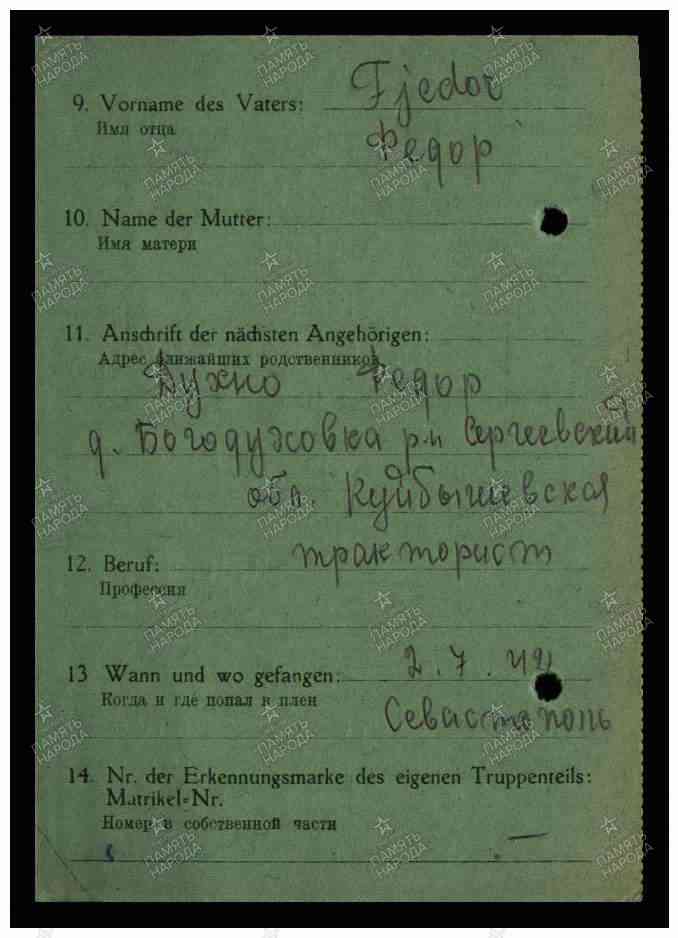 9. Vorname des Vaters: Fjedor
Имя отца
Федор
10. Name der Mutter:
Имя матери
11. Anschrift der nächsten Angehörigen:
Адрес ближайших родственников
Духно Федор
д. Богодуховка р-н Сергеевский
обл. Куйбышевская
12. Beruf: тракторист
Профессия
13 Wann und wo gefangen: 2.7.42
Когда и где попал в плен
Севастополь
14. Nr. der Erkennungsmarke des eigenen Truppenteils:
Matrikel=Nr.
Номер в собственной части
—
ПАМЯТЬ
НАРОДА